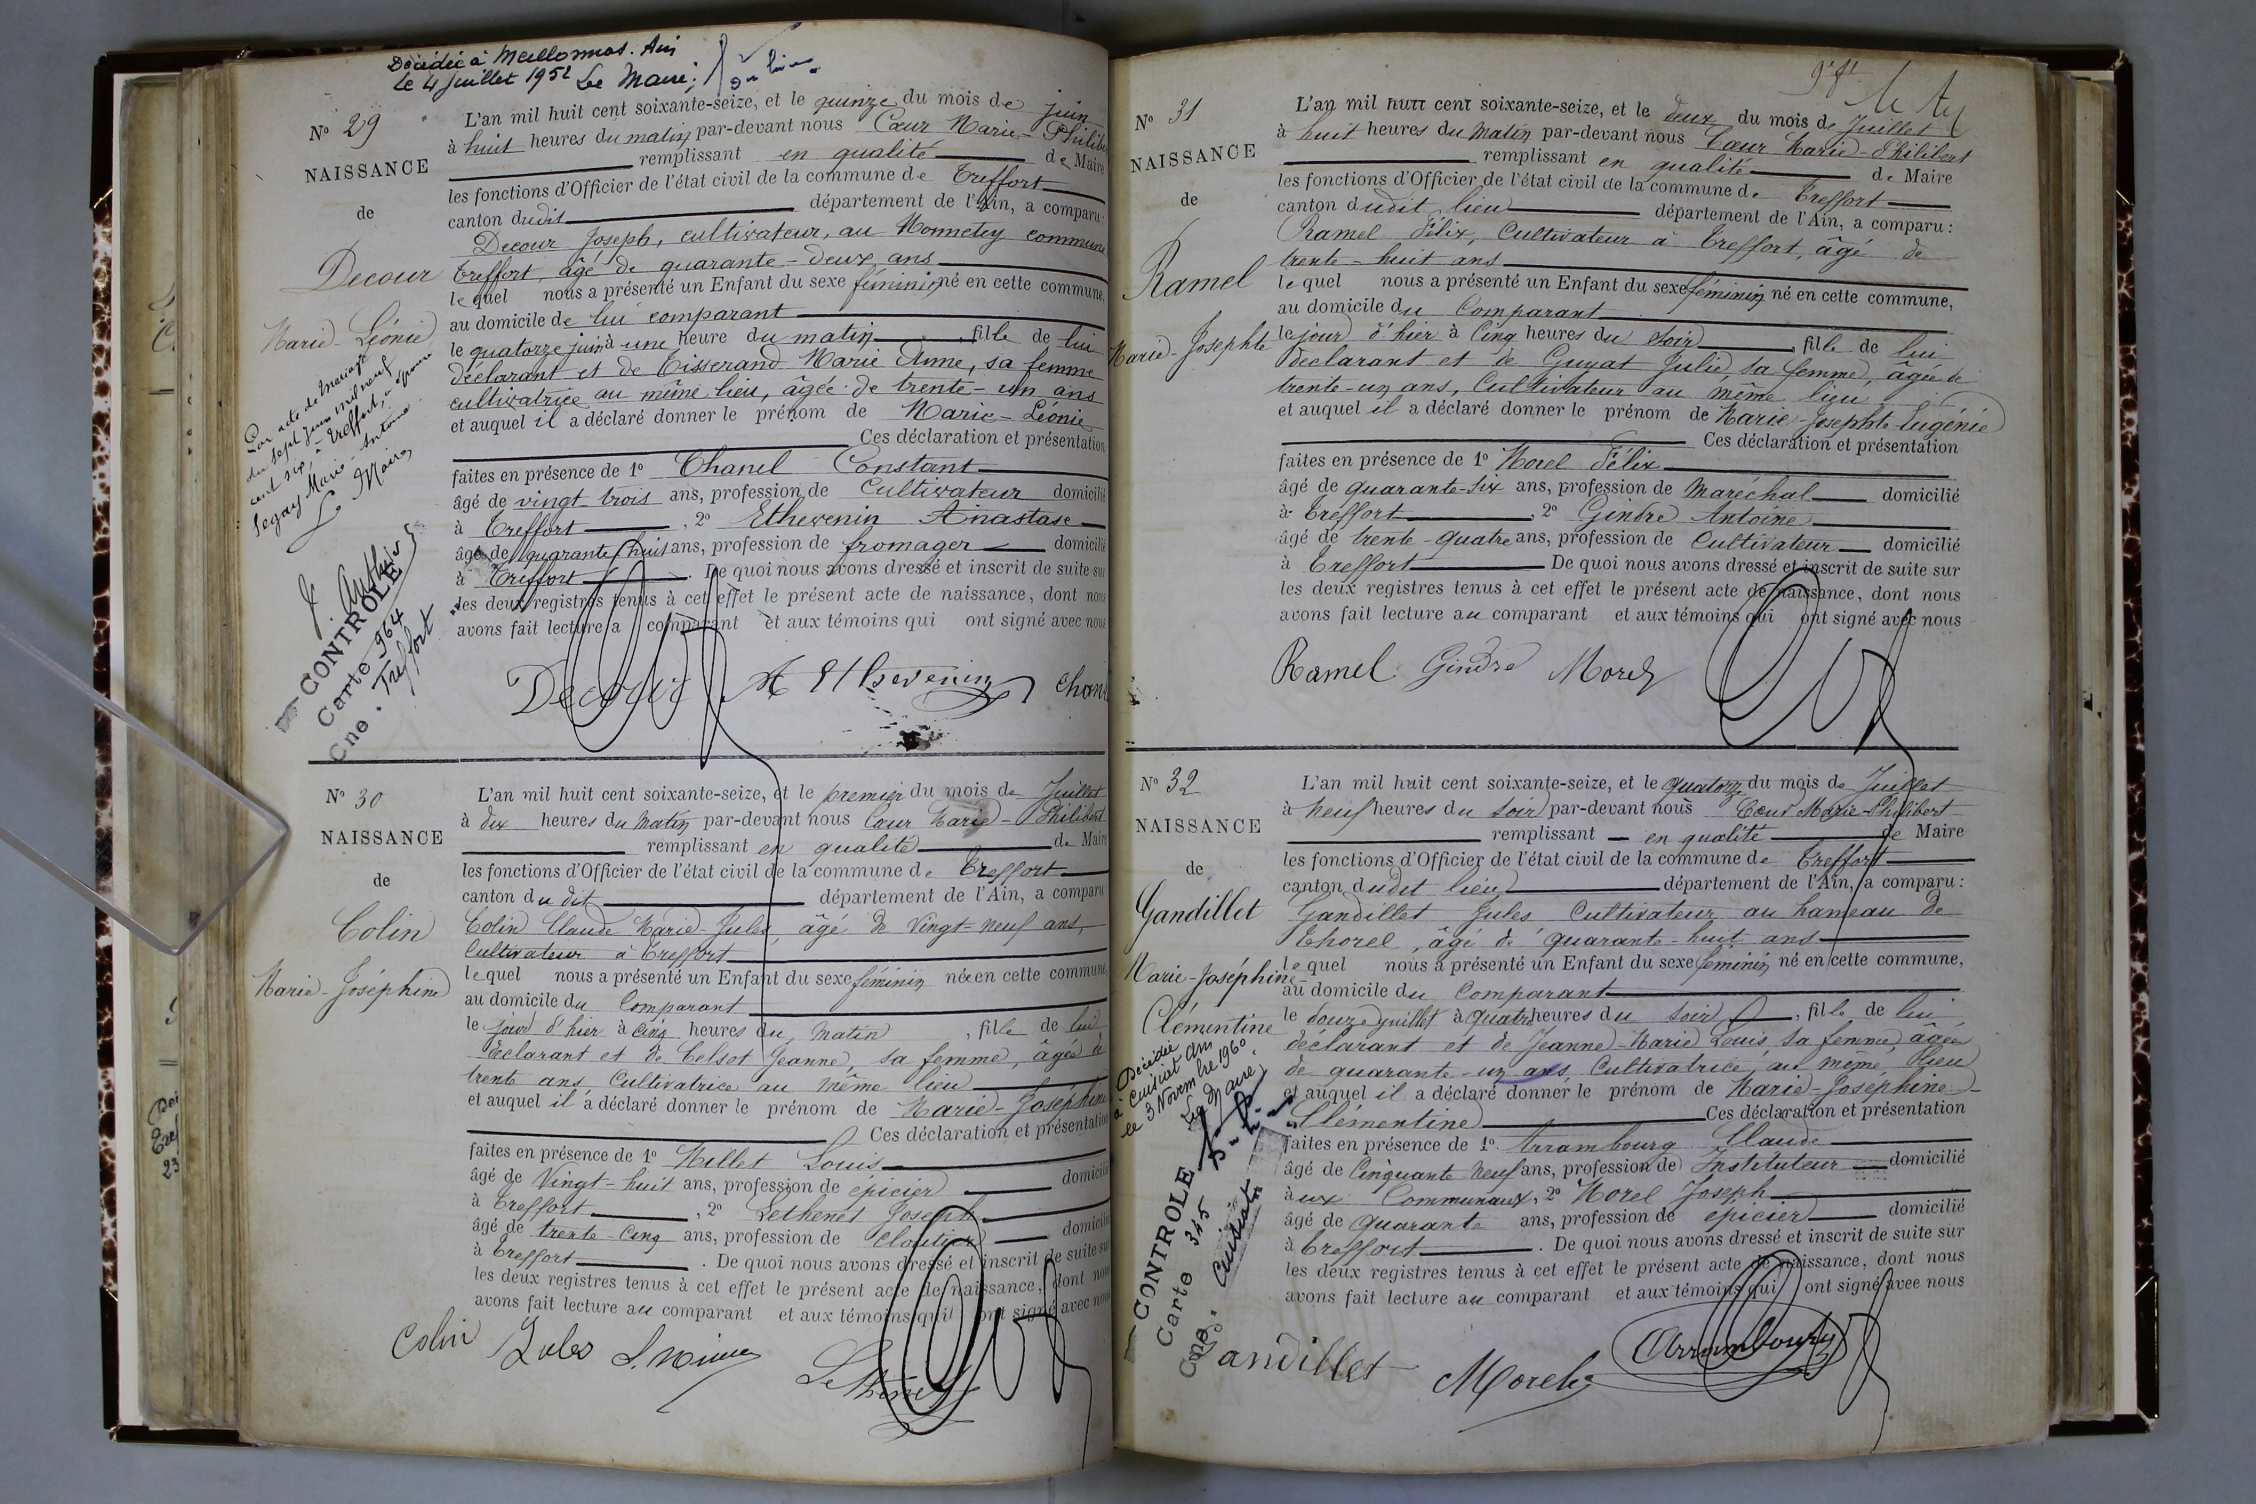 Décédée à Meillonnas. Ain
Le 4 Juillet 1952 Le Maire,
N° 29
NAISSANCE
de
Decour
Marie-Léonie
Par acte de mariage
du sept juin mil neuf
cent six, à Treffort, a épousé
Marie-Antoine
Le Maire,
CONTROLE
Carte 964
Cne. Treffort
L'an mil huit cent soixante-seize, et le quinze du mois de juin
à huit heures du matin par-devant nous Cœur Marie-Philibe
remplissant en qualité de Maire
les fonctions d'Officier de l'état civil de la commune de Treffort
canton dudit département de l'Ain, a comparu:
Decour Joseph, cultivateur, au Monnetey commune
Treffort, âgé de quarante-deux ans
lequel nous a présenté un Enfant du sexe féminin né en cette commune,
au domicile de lui comparant
le quatorze juin à une heure du matin, fille de lui
déclarant et de Tisserand Marie Anne, sa femme
cultivatrice au même lieu, âgée de trente-un ans
et auquel il a déclaré donner le prénom de Marie-Léonie
Ces déclaration et présentation
faites en présence de 1° Chanel Constant
âgé de vingt trois ans, profession de Cultivateur domicilié
à Treffort, 2° Ethevenin Anastase
âgé de quarante huit ans, profession de fromager domicilié
à Treffort. De quoi nous avons dressé et inscrit de suite sur
les deux registres tenus à cet effet le présent acte de naissance, dont nous
avons fait lecture a comparant et aux témoins qui ont signé avec nous
Decour A Ethevenin Chan
N° 30
NAISSANCE
de
Colin
Marie-Joséphine
L'an mil huit cent soixante-seize, et le premier du mois de Juillet
à dix heures du matin par-devant nous Cœur Marie-Philibert
remplissant en qualité de Maire
les fonctions d'Officier de l'état civil de la commune de Treffort
canton du dit département de l'Ain, a comparu
Colin Claude Marie-Jules, âgé de Vingt-neuf ans,
Cultivateur à Treffort
lequel nous a présenté un Enfant du sexe féminin née en cette commune,
au domicile du Comparant
le jour d'hier à cinq heures du matin, fille de lui
déclarant et de Celsot Jeanne, sa femme, âgée de
trente ans, Cultivatrice au même lieu
et auquel il a déclaré donner le prénom de Marie-Joséphine
Ces déclaration et présentation
faites en présence de 1° Millet Louis
âgé de Vingt-huit ans, profession de épicier domicilié
à Treffort, 2° Lethenet Joseph
âgé de trente-cinq ans, profession de Cloutier domicilié
à Treffort. De quoi nous avons dressé et inscrit de suite sur
les deux registres tenus à cet effet le présent acte de naissance, dont nous
avons fait lecture au comparant et aux témoins qui ont signé avec nous
Colin Jules
N° 31
NAISSANCE
de
Ramel
Marie-Josephte
L'an mil huit cent soixante-seize, et le deux du mois de Juillet
à huit heures du matin par-devant nous Cœur Marie-Philibert
remplissant en qualité de Maire
les fonctions d'Officier de l'état civil de la commune de Treffort
canton dudit lieu département de l'Ain, a comparu:
Ramel Félix, Cultivateur à Treffort, âgé de
trente-huit ans
lequel nous a présenté un Enfant du sexe féminin né en cette commune,
au domicile du Comparant
le jour d'hier à Cinq heures du soir, fille de lui
déclarant et de Guyat Julie, sa femme, âgée de
trente-un ans, Cultivateur au même lieu
et auquel il a déclaré donner le prénom de Marie-Josephte Eugénie
Ces déclaration et présentation
faites en présence de 1° Morel Félix
âgé de quarante-six ans, profession de Maréchal domicilié
à Treffort, 2° Gindre Antoine
âgé de trente-quatre ans, profession de Cultivateur domicilié
à Treffort De quoi nous avons dressé et inscrit de suite sur
les deux registres tenus à cet effet le présent acte de naissance, dont nous
avons fait lecture au comparant et aux témoins qui ont signé avec nous
Ramel Gindre Morel
N° 32
NAISSANCE
de
Gandillet
Marie-Joséphine-
Clémentine
Décédée
à Cuisiat Ain
le 3 Novembre 1960
Le Maire,
CONTROLE
Carte 345
Cne. Cuisiat
L'an mil huit cent soixante-seize, et le quatorze du mois de Juillet
à neuf heures du soir par-devant nous Cœur Marie-Philibert
remplissant en qualité de Maire
les fonctions d'Officier de l'état civil de la commune de Treffort
canton dudit lieu département de l'Ain, a comparu:
Gandillet Jules Cultivateur au hameau de
Thorel, âgé de quarante-huit ans
lequel nous a présenté un Enfant du sexe féminin né en cette commune,
au domicile du Comparant
le douze juillet à quatre heures du soir, fille de lui
déclarant et de Jeanne-Marie Louis, sa femme, âgée
de quarante-un ans, Cultivatrice, au même lieu
et auquel il a déclaré donner le prénom de Marie-Joséphine-
Clémentine Ces déclaration et présentation
faites en présence de 1° Arrambourg Claude
âgé de Cinquante neuf ans, profession de Instituteur domicilié
à ux Communaux, 2° Morel Joseph
âgé de quarante ans, profession de épicier domicilié
à Treffort. De quoi nous avons dressé et inscrit de suite sur
les deux registres tenus à cet effet le présent acte de naissance, dont nous
avons fait lecture au comparant et aux témoins qui ont signé avec nous
Gandillet Morel Arrambourg